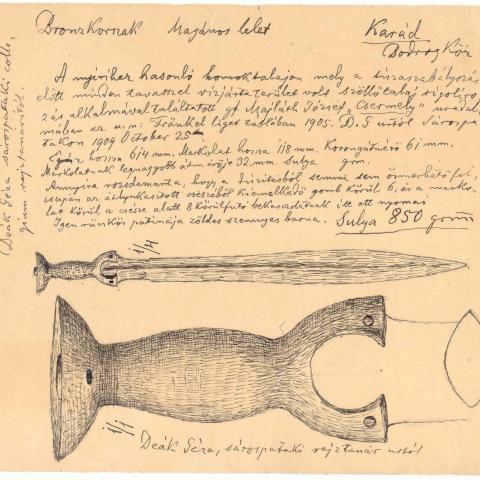 Bronzkorszak Magános lelet Karád
Bodrog Köz
A nyírihez hasonló homoktalajon mely a tiszaszabályozás
előtt minden tavasszal vízjárta terület volt szőllőtalaj rigolíro
zás alkalmával találtatott gf. Majláth József „Csermely" uradal
mában az u.n. Fränkel liget táblában 1905. D. G úrtól Sárospa
takon 1909 October 25én
Egész hossza 614 mm. Markolat hossza 118 mm. Korongátmérő 61 mm.
Markolatnak legnagyobb átmérője 32 mm. sulya grm.
Annyira rozsdamarta, hogy a díszitésből semmi sem ismerhető fel,
csupán az átlyukasztott csészéből kiemelkedő gomb körül 6, és a marko
lat körül a csésze alatt 8 körülfutó bekarcolatnak itt ott nyomai
Igen rücskös patinája zöldes szennyes barna. Sulya 850 grm
(Deák Géza sárospataki colle-
gium rajztanárától.
1/4
1/1
Deák Géza, sárospataki rajztanár úrtól